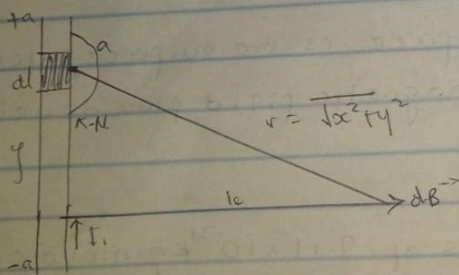 +a
a
dl
π-θ
r = √x²+y²
y
x
dB→
↑I₁
-a